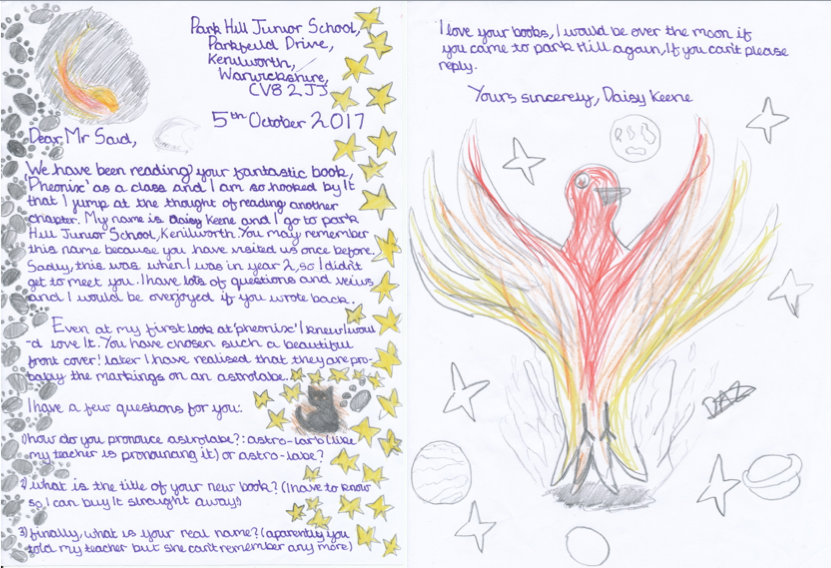 Park Hill Junior School,
Parkfield Drive,
Kenilworth,
Warwickshire,
CV8 2JJ
5th October 2017
Dear, Mr Said,
We have been reading your fantastic book,
'Pheonix' as a class and I am so hooked by it
that I jump at the thought of reading another
chapter. My name is Daisy Keene and I go to park
Hill Junior School, Kenilworth. You may remember
this name because you have visited us once before.
Sadly, this was when I was in year 2, so I didn't
get to meet you. I have lots of questions and veiws
and I would be overjoyed if you wrote back.
Even at my first look at 'pheonix' I knew I woul
-d love it. You have chosen such a beautiful
front cover! later I have realised that they are pro-
bably the markings on an astrolabe.
I have a few questions for you:
1) how do you pronouce astrolabe?: astro-larb (like
my teacher is pronouncing it) or astro-labe?
2) what is the title of your new book? (I have to know
so, I can buy it strought away!)
3) finally, what is your real name? (aparently you
told my teacher but she can't remember any more)
I love your books, I would be over the moon if
you came to park Hill again, If you can't please
reply.
Yours sincerely, Daisy Keene